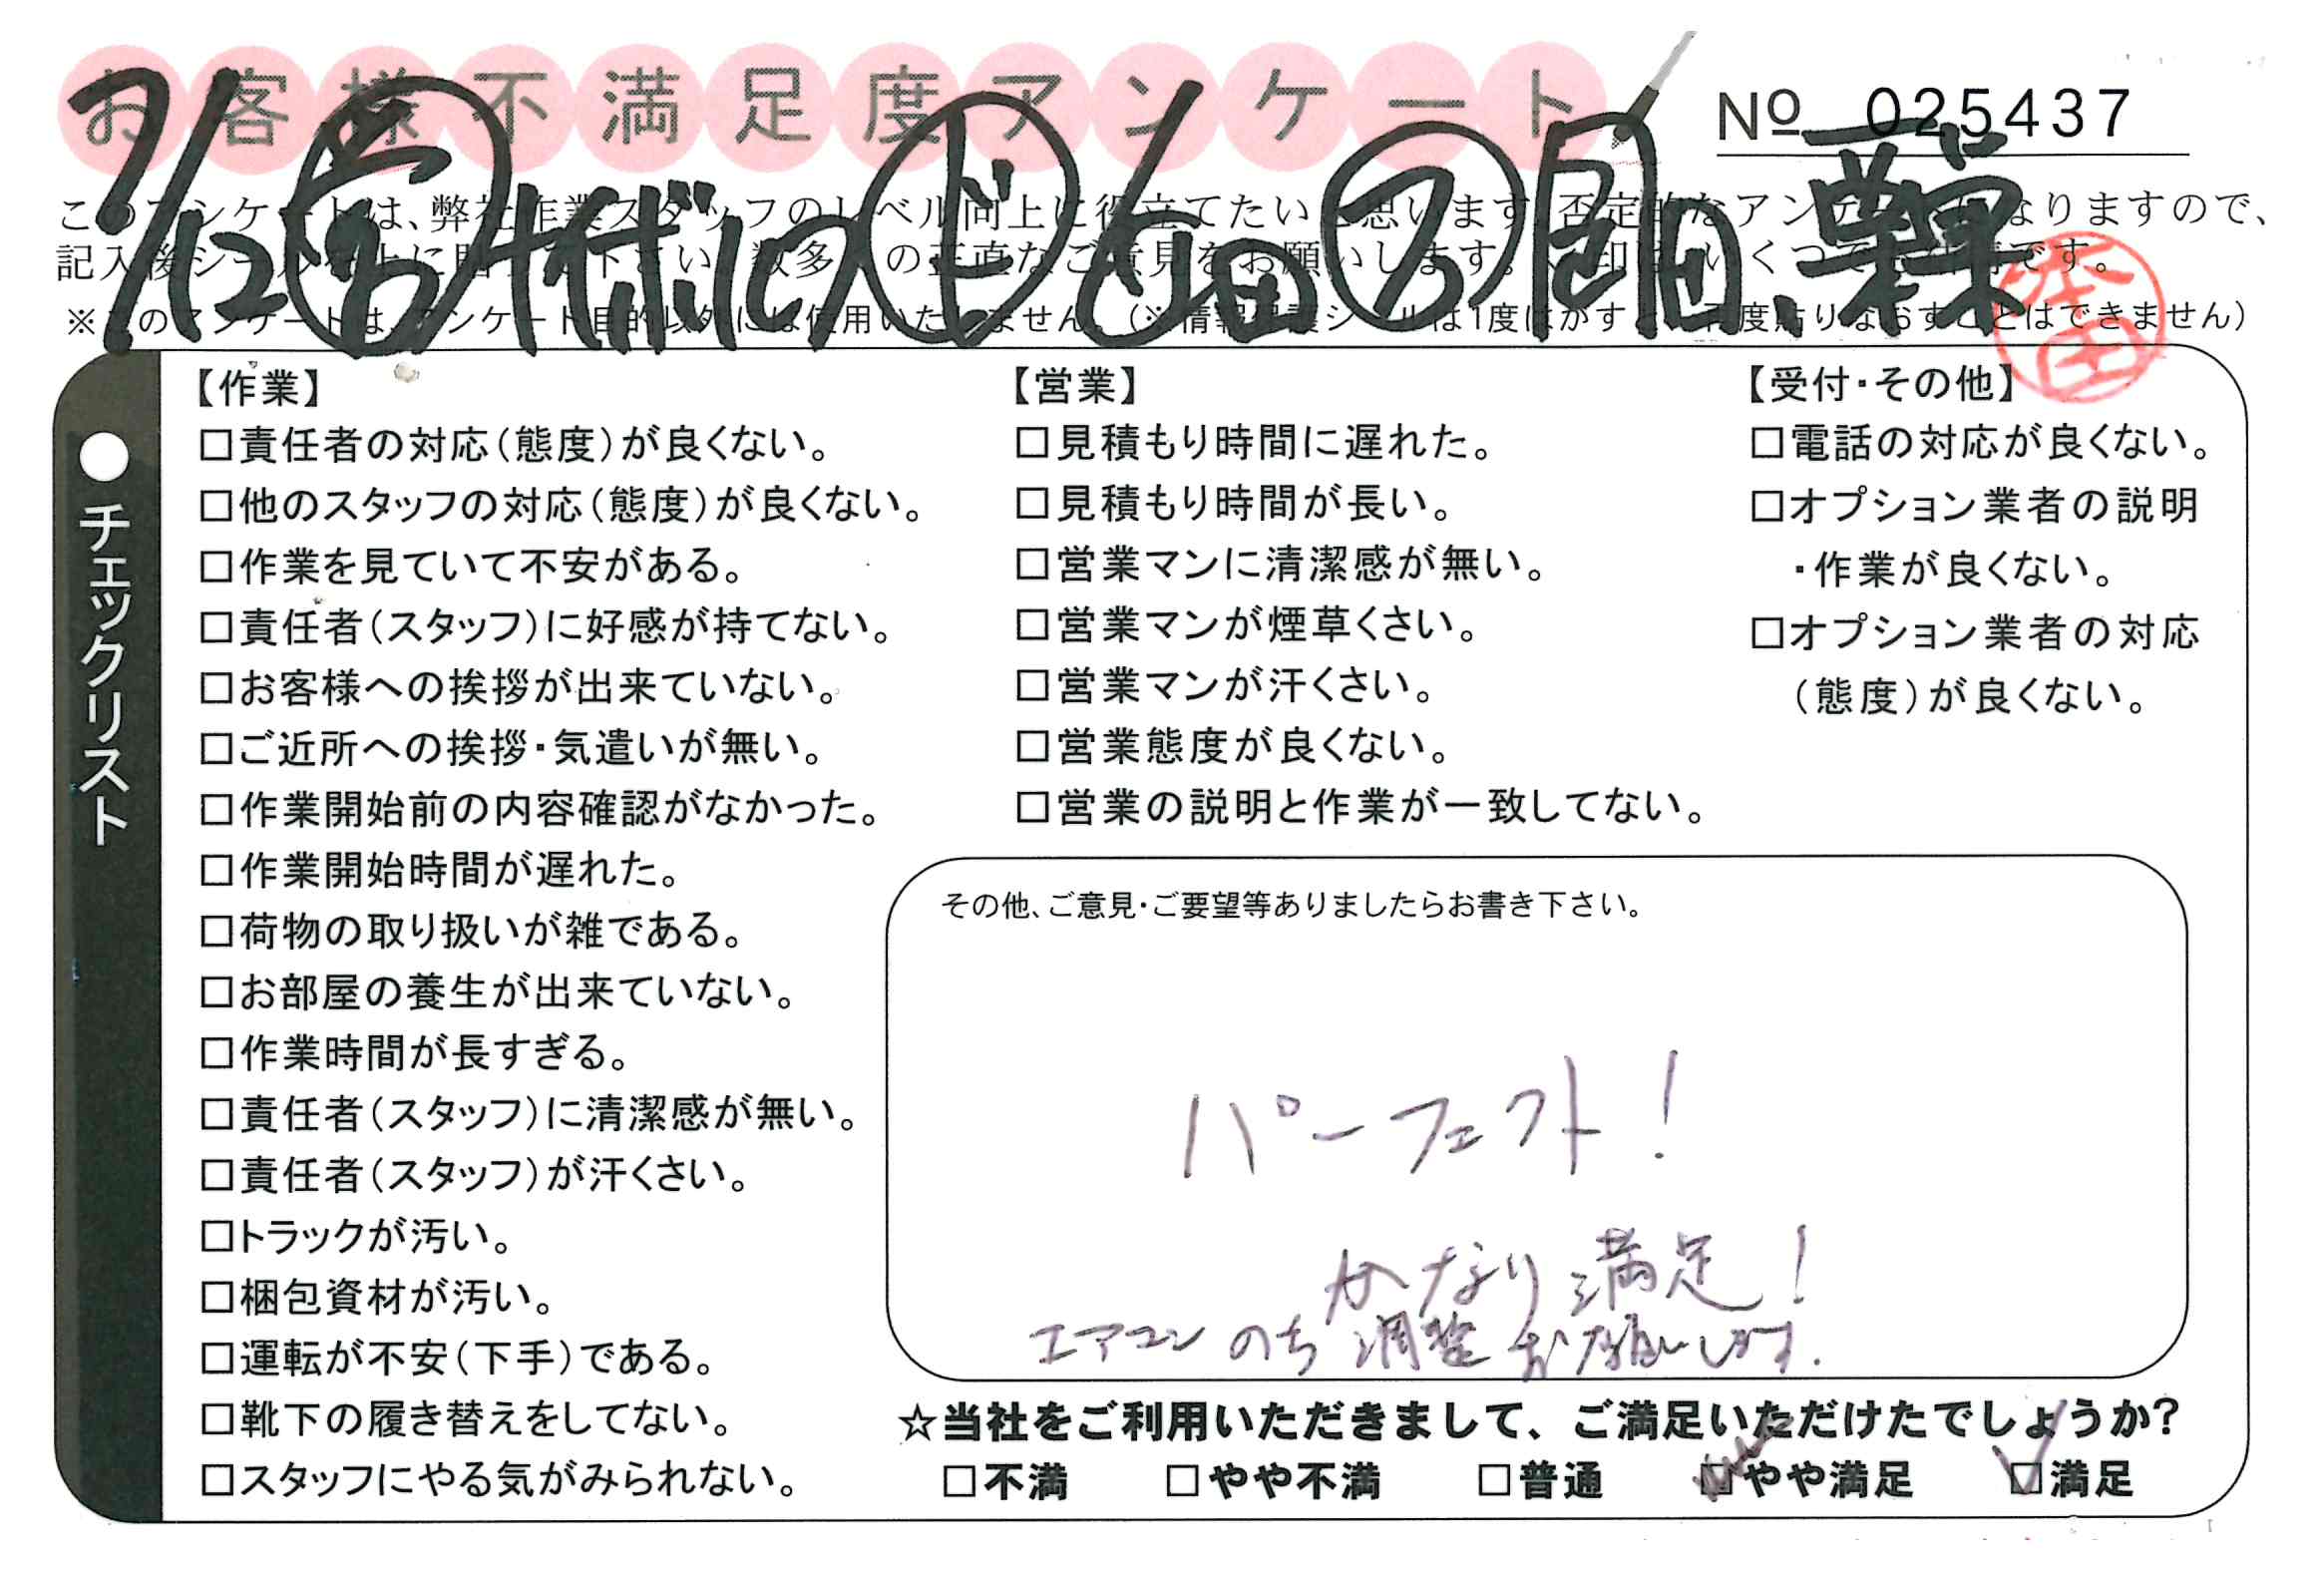 お客様不満足度アンケート
No 025437
このアンケートは、弊社作業スタッフのレベル向上に役立てたいと思います。否定的なアンケートになりますので、
※このアンケートは、アンケート目的以外には使用いたしません。(※情報保護シールは1度はがすと、再度貼りなおすことはできません)
7/12
本田
チェックリスト
【作業】
□責任者の対応(態度)が良くない。
□他のスタッフの対応(態度)が良くない。
□作業を見ていて不安がある。
□責任者(スタッフ)に好感が持てない。
□お客様への挨拶が出来ていない。
□ご近所への挨拶・気遣いが無い。
□作業開始前の内容確認がなかった。
□作業開始時間が遅れた。
□荷物の取り扱いが雑である。
□お部屋の養生が出来ていない。
□作業時間が長すぎる。
□責任者(スタッフ)に清潔感が無い。
□責任者(スタッフ)が汗くさい。
□トラックが汚い。
□梱包資材が汚い。
□運転が不安(下手)である。
□靴下の履き替えをしてない。
□スタッフにやる気がみられない。
【営業】
□見積もり時間に遅れた。
□見積もり時間が長い。
□営業マンに清潔感が無い。
□営業マンが煙草くさい。
□営業マンが汗くさい。
□営業態度が良くない。
□営業の説明と作業が一致してない。
【受付・その他】
□電話の対応が良くない。
□オプション業者の説明
・作業が良くない。
□オプション業者の対応
(態度)が良くない。
その他、ご意見・ご要望等ありましたらお書き下さい。
パーフェクト!
かなり満足!
エアコン のち 調整 お願いします.
☆当社をご利用いただきまして、ご満足いただけたでしょうか?
□不満 □やや不満 □普通 □やや満足 ☑満足